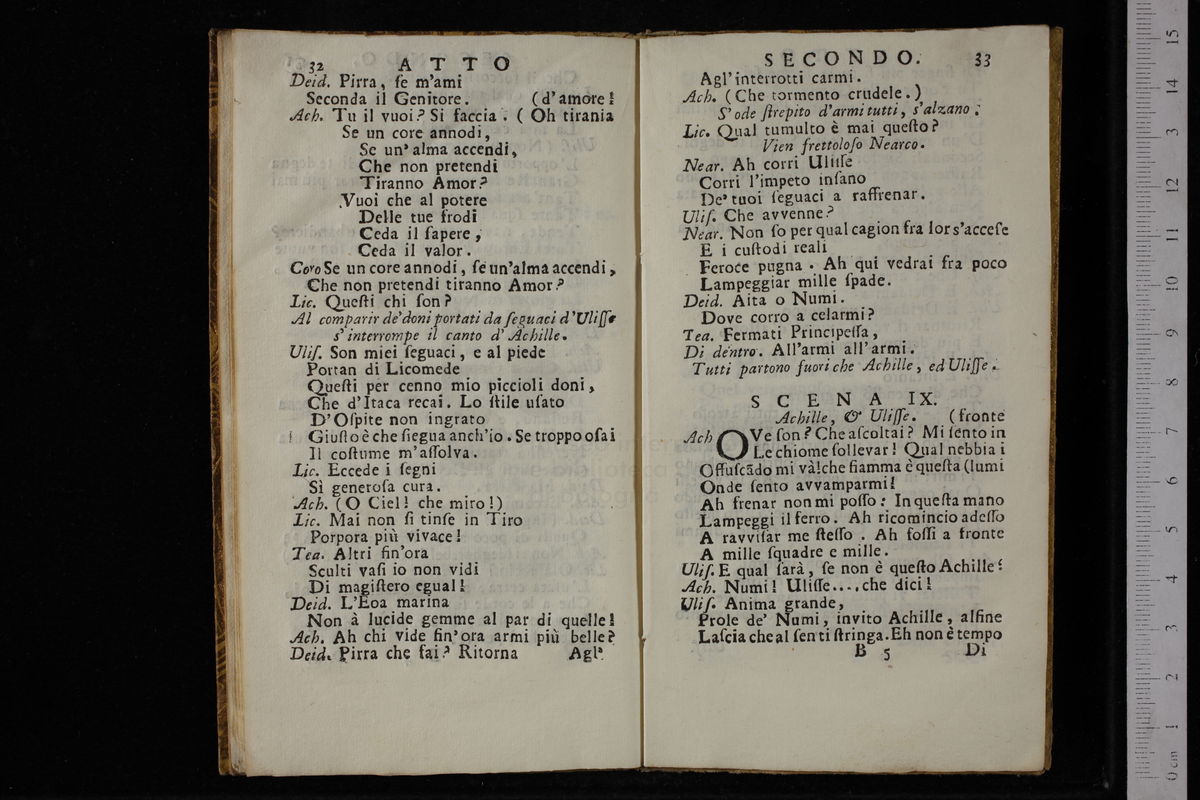 32 ATTO
Deid. Pirra, ſe m'ami
Seconda il Genitore. (d'amore!
Ach. Tu il vuoi? Si faccia. (Oh tirania
Se un core annodi,
Se un'alma accendi,
Che non pretendi
Tiranno Amor?
Vuoi che al potere
Delle tue frodi
Ceda il ſapere,
Ceda il valor.
Coro Se un core annodi, ſe un'alma accendi,
Che non pretendi tiranno Amor?
Lic. Queſti chi ſon?
Al comparir de'doni portati da ſeguaci d'Uliſſe
s'interrompe il canto d'Achille.
Uliſ. Son miei ſeguaci, e al piede
Portan di Licomede
Queſti per cenno mio piccioli doni,
Che d'Itaca recai. Lo ſtile uſato
D'Oſpite non ingrato
Giuſto è che ſiegua anch'io. Se troppo oſai
Il coſtume m'aſſolva.
Lic. Eccede i ſegni
Sì generoſa cura.
Ach. (O Ciel! che miro!)
Lic. Mai non ſi tinſe in Tiro
Porpora più vivace!
Tea. Altri fin'ora
Sculti vaſi io non vidi
Di magiſtero egual!
Deid. L'Eoa marina
Non à lucide gemme al par di quelle!
Ach. Ah chi vide fin'ora armi più belle?
Deid. Pirra che fai? Ritorna Agl'
SECONDO. 33
Agl'interrotti carmi.
Ach. (Che tormento crudele.)
S'ode ſtrepito d'armi tutti, s'alzano.
Lic. Qual tumulto è mai queſto?
Vien frettoloſo Nearco.
Near. Ah corri Uliſſe
Corri l'impeto inſano
De' tuoi ſeguaci a raffrenar.
Uliſ. Che avvenne?
Near. Non ſo per qual cagion fra lor s'acceſe
E i cuſtodi reali
Feroce pugna. Ah qui vedrai fra poco
Lampeggiar mille ſpade.
Deid. Aita o Numi.
Dove corro a celarmi?
Tea. Fermati Principeſſa,
Di dentro. All'armi all'armi.
Tutti partono fuori che Achille, ed Uliſſe.
SCENA IX.
Achille, & Uliſſe. (fronte
Ach OVe ſon? Che aſcoltai? Mi ſento in
Le chiome ſollevar! Qual nebbia i
Offuſcādo mi và!che fiamma è queſta (lumi
Onde ſento avvamparmi!
Ah frenar non mi poſſo: In queſta mano
Lampeggi il ferro. Ah ricomincio adeſſo
A ravviſar me ſteſſo. Ah foſſi a fronte
A mille ſquadre e mille.
Uliſ. E qual ſarà, ſe non è queſto Achille?
Ach. Numi! Uliſſe....che dici!
Uliſ. Anima grande,
Prole de' Numi, invito Achille, alfine
Laſcia che al ſen ti ſtringa. Eh non è tempo
B 5 Di